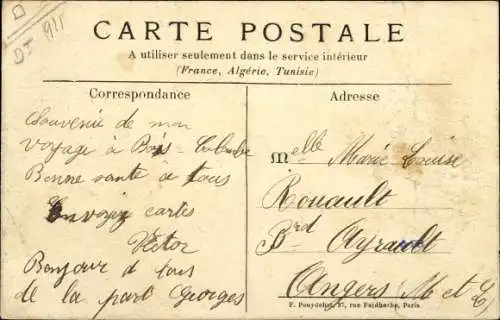 911
CARTE POSTALE
A utiliser seulement dans le service intérieur
(France, Algérie, Tunisie)
Correspondance
Souvenir de mon
voyage à Bois-Colombe
Bonne santé à tous
Envoyiz cartes
Victor
Bonjour d tous
de la part Georges
Adresse
Melle Marie Louise
Rouault
Brd Ayrault
Angers M et L
F. Pouydebat, 57, rue Faidherbe, Paris